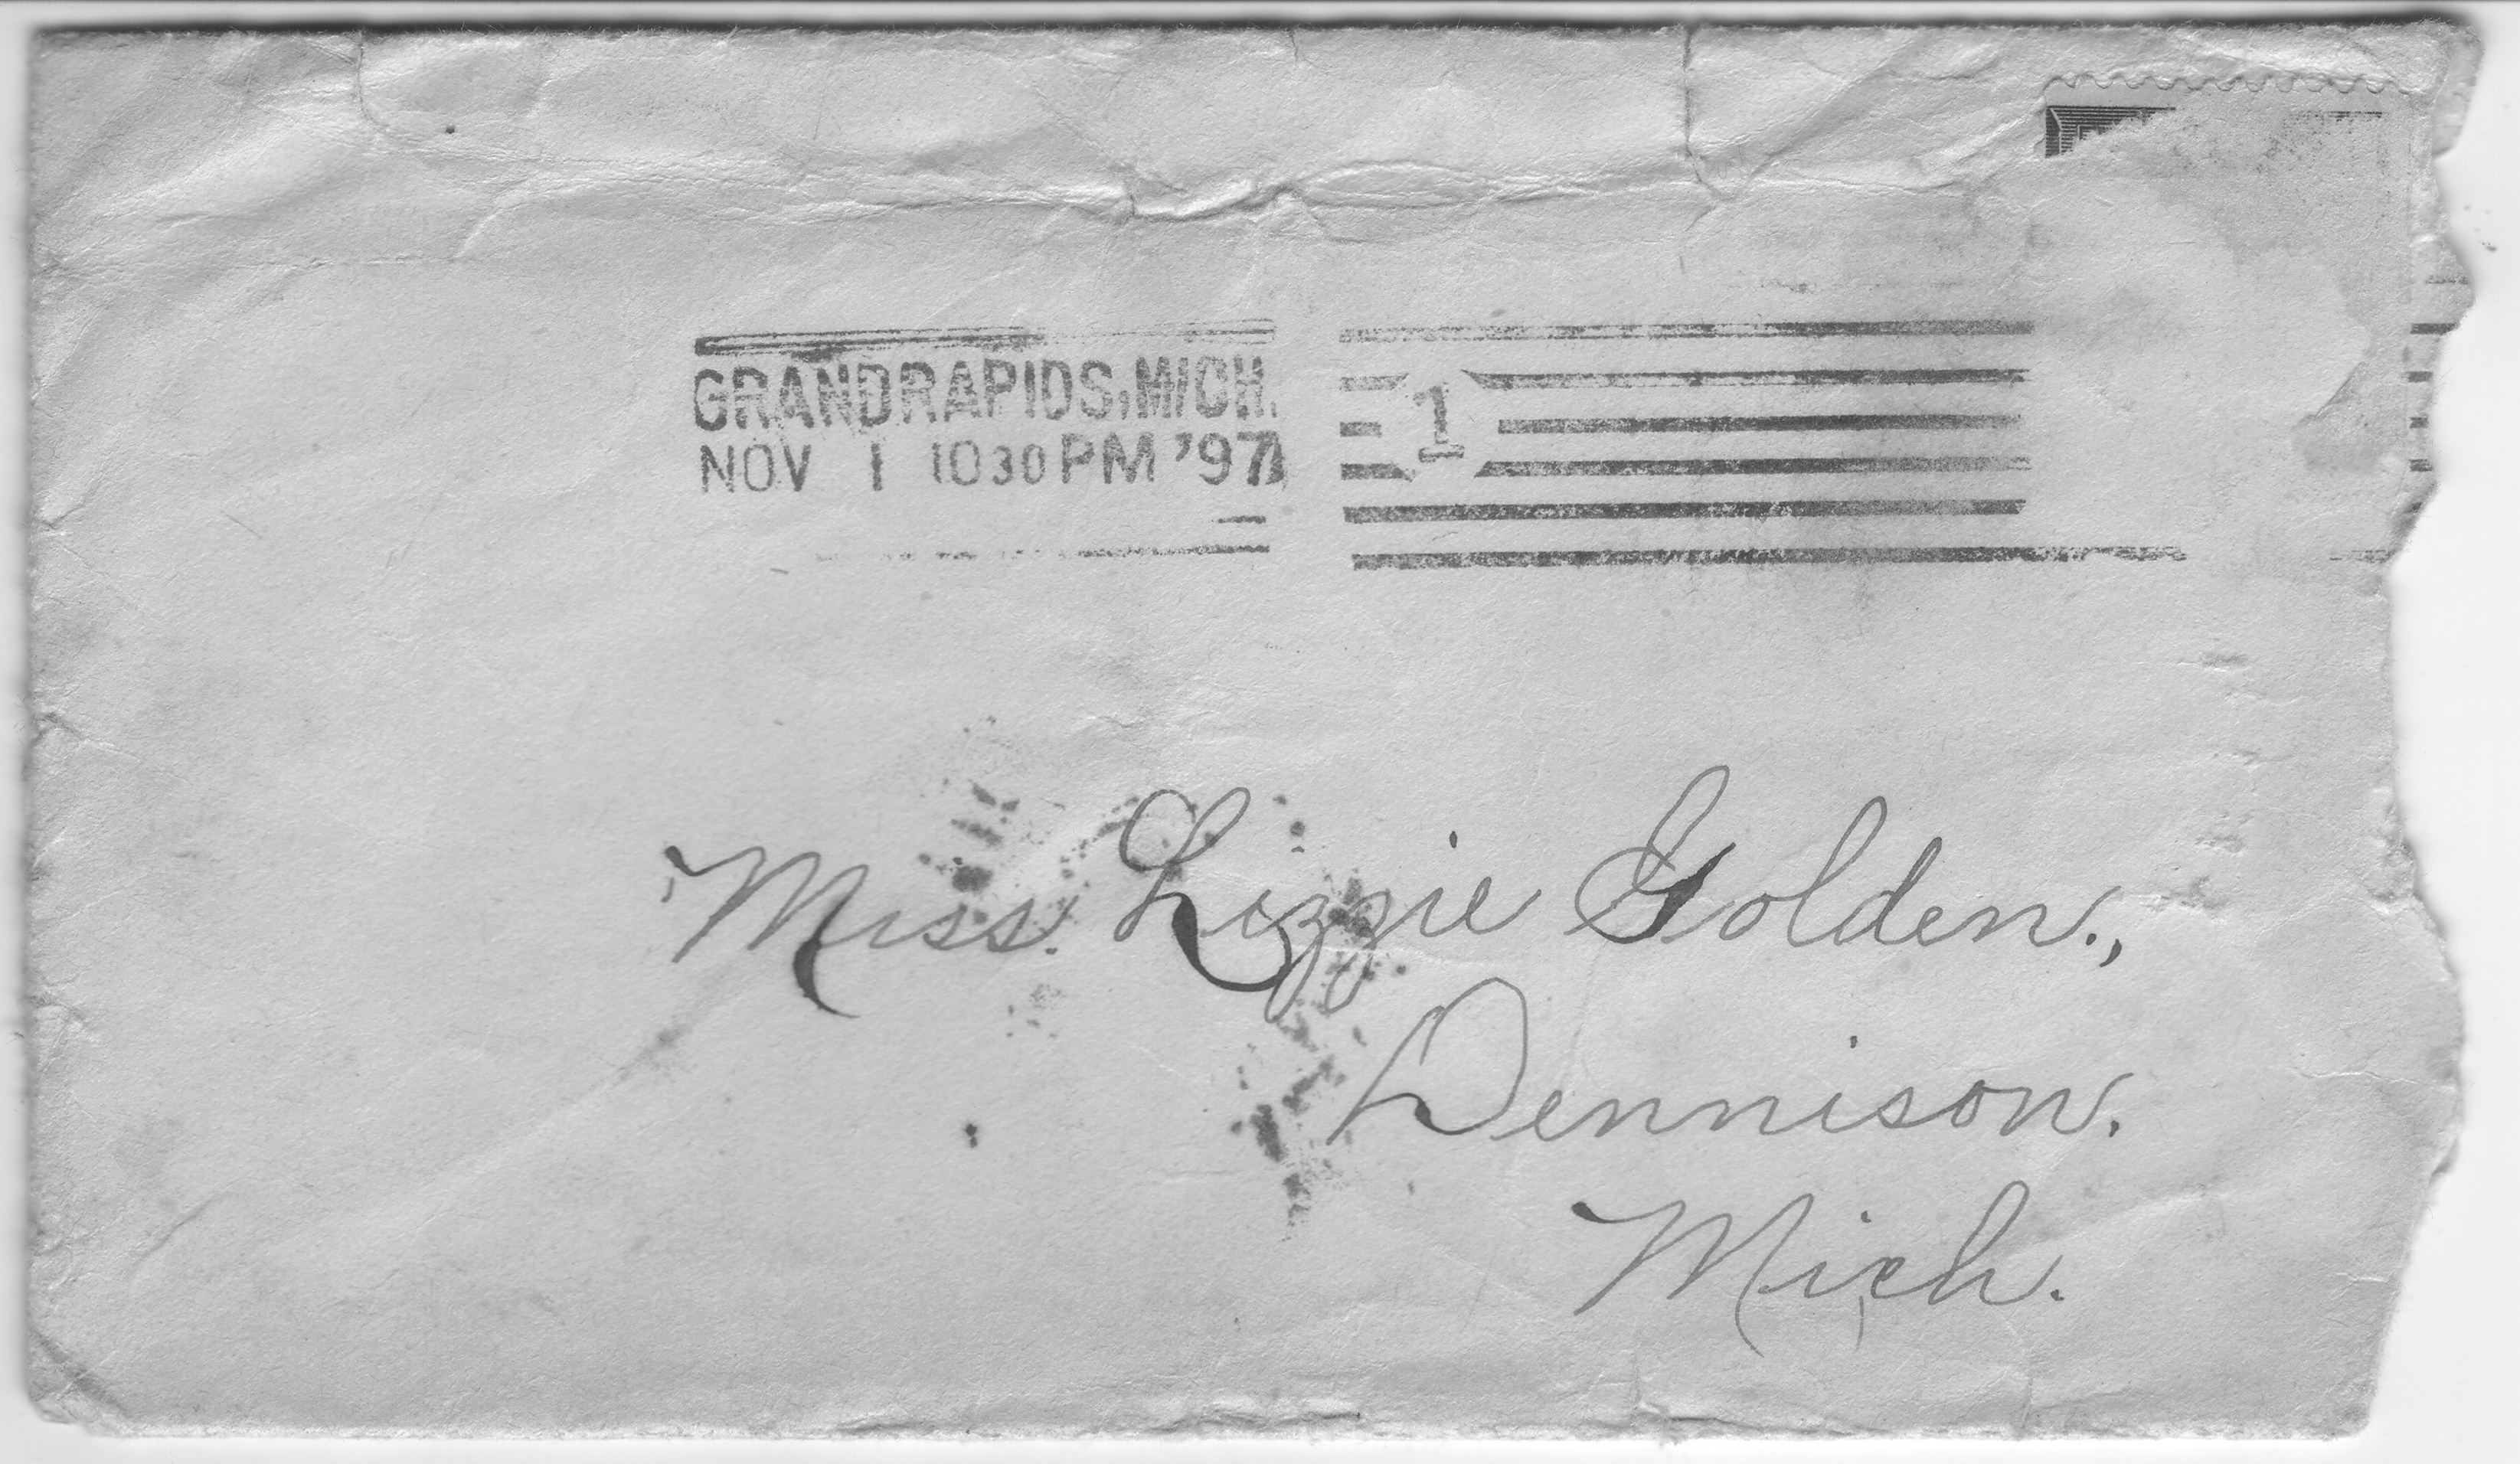 GRAND RAPIDS, MICH.
NOV 1 1030 PM '97
1
Miss. Lizzie Golden.,
Dennison.
Mich.